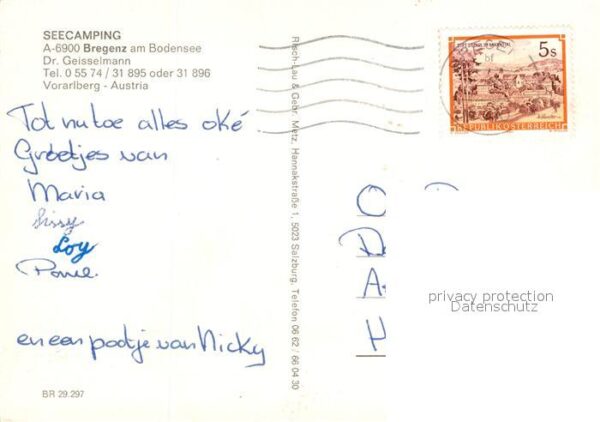 SEECAMPING
A-6900 Bregenz am Bodensee
Dr. Geisselmann
Tel. 0 55 74 / 31 895 oder 31 896
Vorarlberg - Austria
Tot nu toe alles oké
Groetjes van
Maria
Sissy
Loy
en een pootje van Nicky
BR 29.297
Risch-Lau & Gebr. Metz, Hannakstraße 1, 5023 Salzburg, Telefon 06 62 / 66 04 30
5s
REPUBLIK ÖSTERREICH
privacy protection
Datenschutz